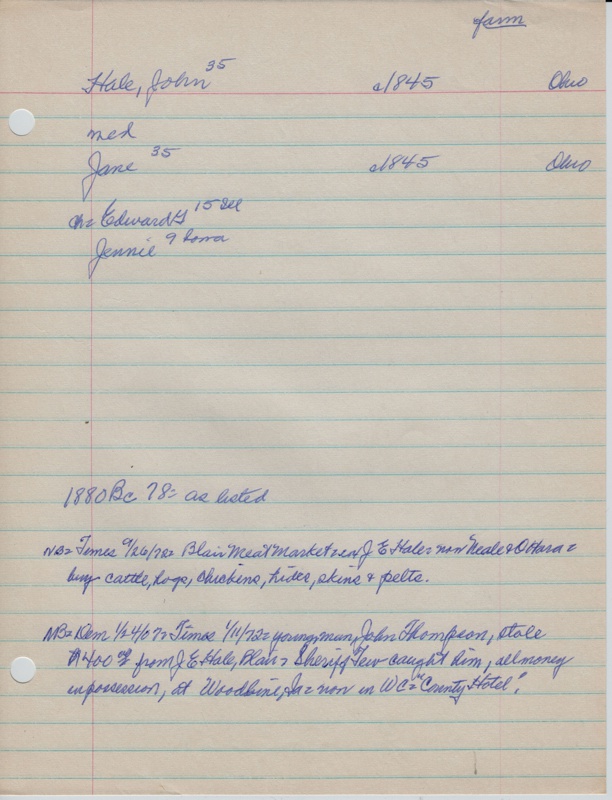 farm
Hale, John 35 c1845 Ohio
med
Jane 35 c1845 Ohio
ch= Edward G 15 Ill
Jennie 9 Iowa
1880 Bc 78= as listed
NB= Times 9/26/78= Blair Meat Market= J E Hale= now "Neale & O'Hara=
buy cattle, hogs, chickens, hides, skins & pelts.
NB= Dem 1/24/07= Times 1/11/72= young man, John Thompson, stole
$400 from J. E. Hale, Blair= Sheriff Tew caught him, all money
in possession, at Woodbine, Ia= now in WC= "County Hotel".